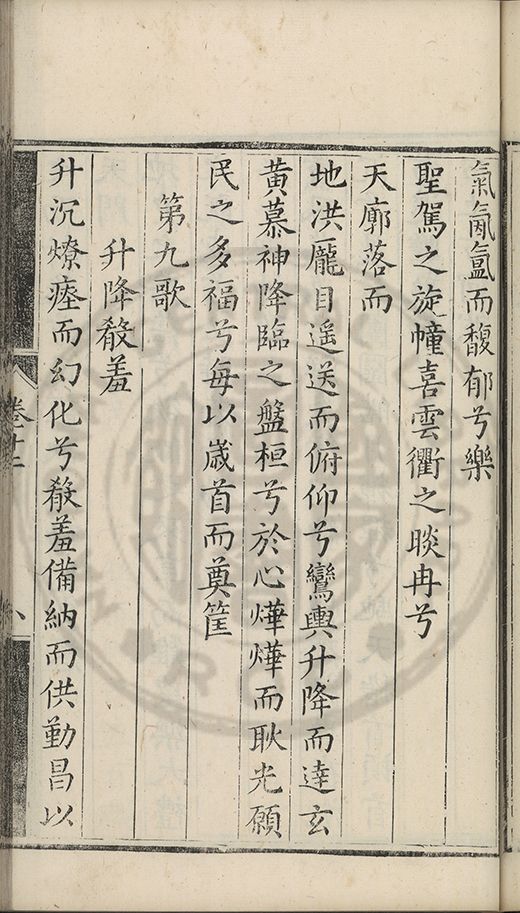 氣氤氳而馥郁兮樂
聖駕之旋幢喜雲衢之晱冉兮
天廓落而
地洪龎目遥送而俯仰兮鸞輿升降而達玄
黄慕神降臨之盤桓兮於心燁燁而耿光願
民之多福兮每以歲首而奠筐
第九歌
升降殽羞
升沉燎瘞而幻化兮殽羞備納而供勤昌以
卷十二
八